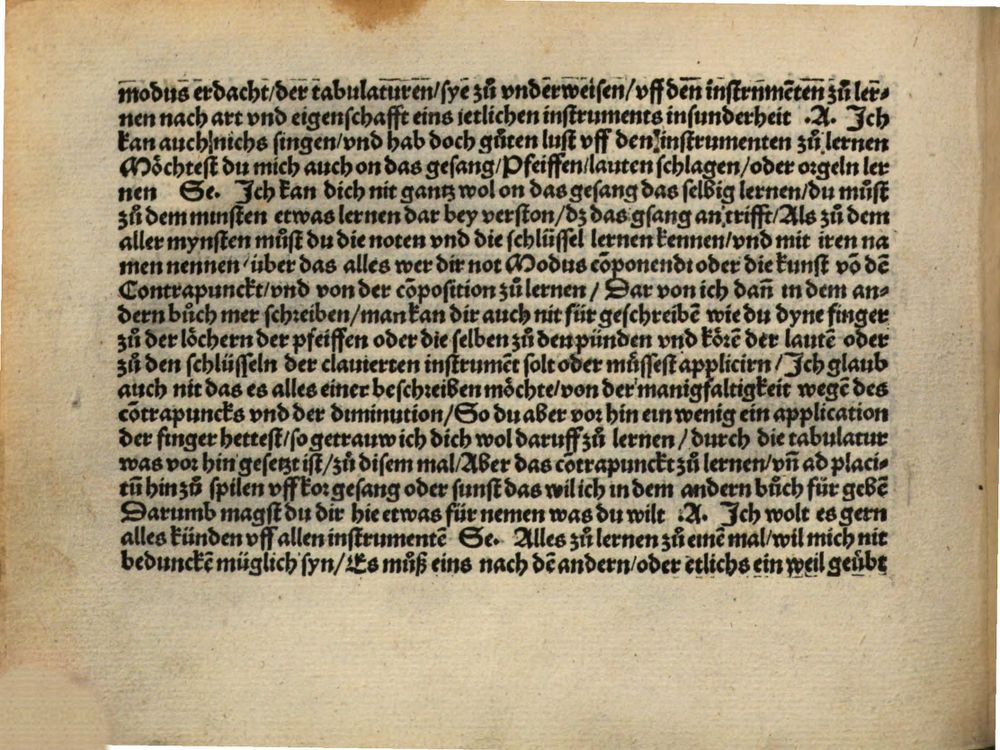 modus erdacht/der tabulaturen/sye zů vnderweisen/vff den instrumẽten zů ler-
nen nach art vnd eigenschafft eins ietlichen instruments insunderheit .A. Ich
kan auch nichs singen/vnd hab doch gůten lust vff den instrumenten zů lernen
Möchtest du mich auch on das gesang/Pfeiffen/lauten schlagen/oder orgeln ler
nen Se. Ich kan dich nit gantz wol on das gesang das selbig lernen/du můst
zů dem minsten etwas lernen dar bey verston/dz das gsang an trifft/Als zů dem
aller mynsten můst du die noten vnd die schlüssel lernen kennen/vnd mit iren na
men nennen/über das alles wer dir not Modus cõponendi oder die kunst võ dẽ
Contrapunckt/vnd von der cõposition zů lernen/Dar von ich dañ in dem an-
dern bůch mer schreiben/man kan dir auch nit für geschreibẽ wie du dyne finger
zů der löchern der pfeiffen oder die selben zů den pünden vnd körẽ der lautẽ oder
zů den schlüsseln der clauierten instrumẽt solt oder müssest applicirn/Ich glaub
auch nit das es alles einer beschreiben möchte/von der manigfaltigkeit wegẽ des
cõtrapuncks vnd der diminution/So du aber vor hin ein wenig ein application
der finger hettest/so getrauw ich dich wol daruff zů lernen/durch die tabulatur
was vor hin gesetzt ist/zů disem mal/Aber das cõtrapunckt zů lernen/vñ ad placi-
tũ hin zů spilen vff kor gesang oder sunst das wil ich in dem andern bůch für gebẽ
Darumb magst du dir hie etwas für nemen was du wilt .A. Ich wolt es gern
alles künden vff allen instrumentẽ Se. Alles zů lernen zů einẽ mal/wil mich nit
beduncken müglich syn/Es můß eins nach dẽ andern/oder etlichs ein weil geübt